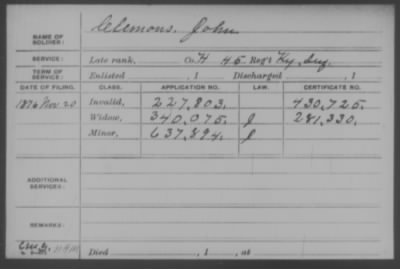 NAME OF SOLDIER: Clemons, John
SERVICE: Late rank, Co. H 45 Reg't Ky. Inf.
TERM OF SERVICE: Enlisted , 1 Discharged , 1
DATE OF FILING. CLASS. APPLICATION NO. LAW. CERTIFICATE NO.
1876 Nov. 20 Invalid, 227,803. 430,725.
Widow, 340,075. 281,330.
Minor, 637,894.
ADDITIONAL SERVICES:
REMARKS:
Died , 1 , at